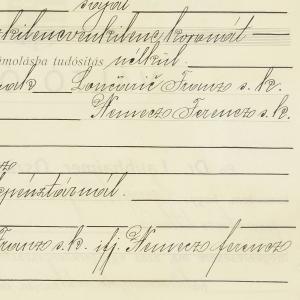 saját
kilencvenkilenc koronát
ámolásba tudósítás nélkül.
nak Lončarič Franz s. k.
Nemecz Ferencz s. k.
z
pénztárnál.
Franz s. k. ifj. Nemecz ferencz